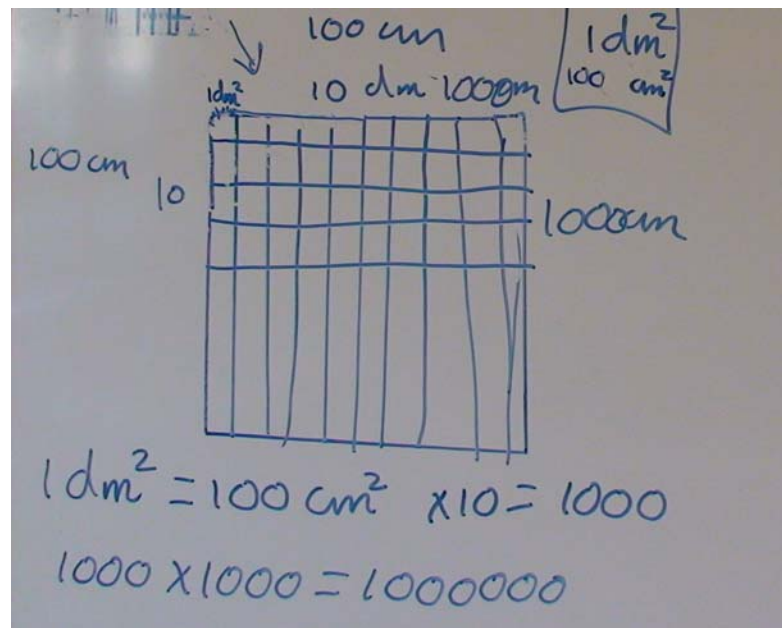 100 cm
1dm²
100 cm²
1dm²
10 dm 1000cm
100 cm
10
1000cm
1dm² = 100 cm² x10 = 1000
1000 x 1000 = 1000000